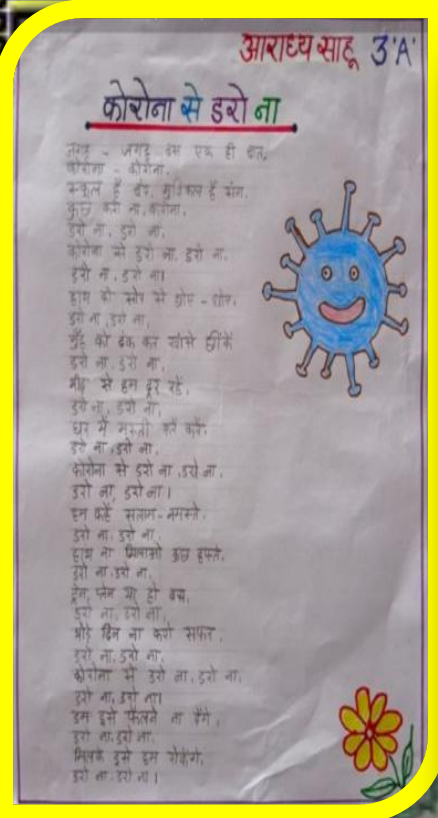 आराध्य साहू 3'A'
कोरोना से डरो ना
जगह - जगह बस एक ही बात,
कोरोना - कोरोना,
स्कूल हैं बंद, मुश्किल हैं
कुछ करो ना, कोरोना,
डरो ना, डरो ना,
कोरोना से डरो ना, डरो ना,
डरो ना, डरो ना।
हाथ को सोप से धोए - धोए,
डरो ना, डरो ना,
मुँह को ढंक कर खांसे छींकें
डरो ना, डरो ना,
भीड़ से हम दूर रहें,
डरो ना, डरो ना,
घर में मस्ती करें करें,
डरो ना, डरो ना,
कोरोना से डरो ना, डरो ना,
डरो ना, डरो ना।
हम कहें सलाम-नमस्ते,
डरो ना, डरो ना,
हाथ ना मिलाओ कुछ हफ्ते,
डरो ना, डरो ना,
ट्रेन, प्लेन या हो बस,
डरो ना, डरो ना,
थोड़े दिन ना करो सफर,
डरो ना, डरो ना,
कोरोना से डरो ना, डरो ना,
डरो ना, डरो ना।
हम इसे फैलने ना देंगे,
डरो ना, डरो ना,
मिलके इसे हम रोकेंगे,
डरो ना, डरो ना।